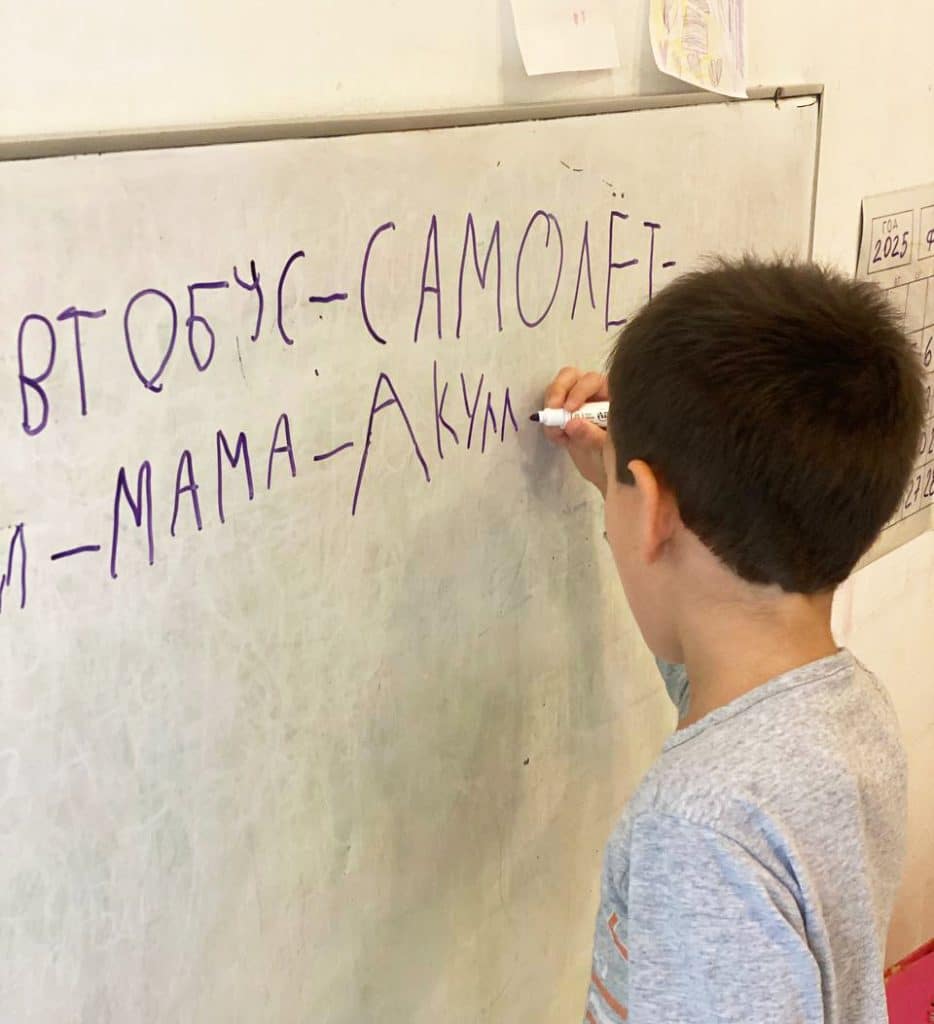 ВТОБУС-САМОЛЁТ-
Л-МАМА-АКУЛЛ
ГОД
2025
6
27 28